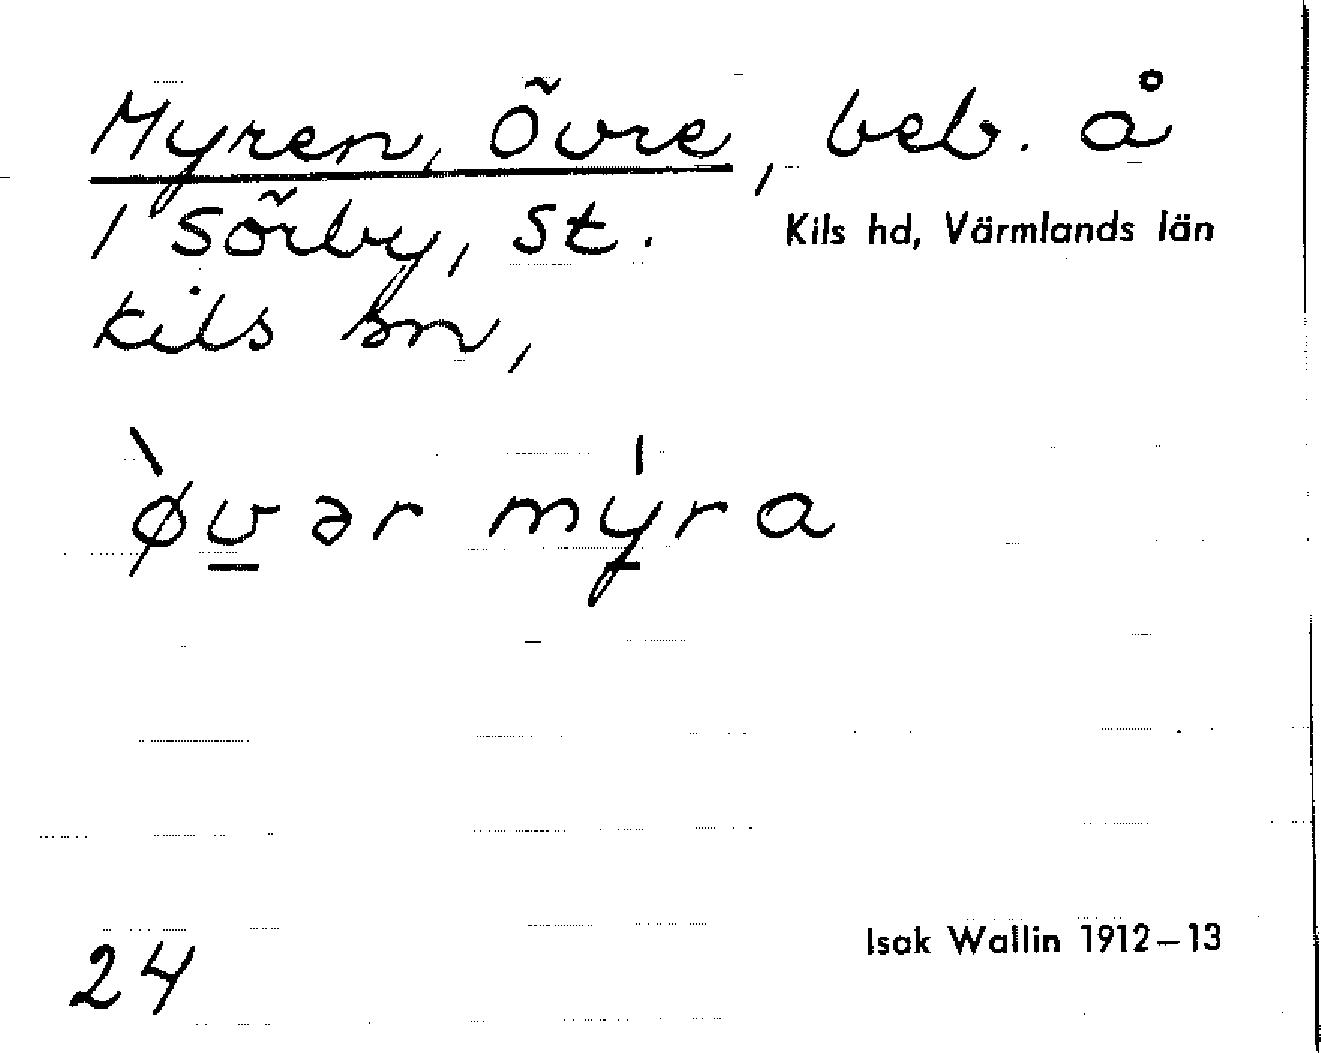 Myren, Övre, beb. å
1 Sörby, St.
Kils hd, Värmlands län
Kils sn,
ø̀v̲ər mý̲ra
24
Isak Wallin 1912–13